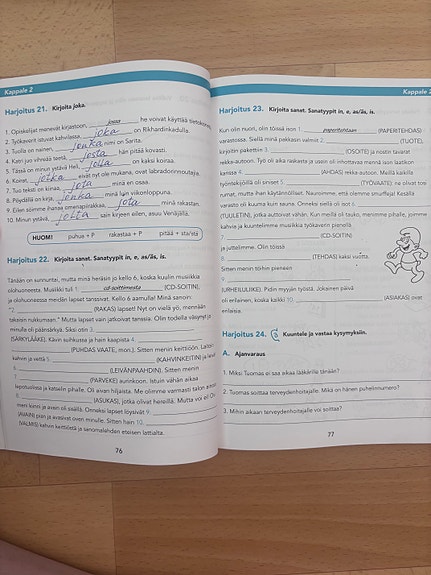 Kappale 2
Harjoitus 21. Kirjoita joka.
1. Opiskelijat menevät kirjastoon, jossa he voivat käyttää tietokonetta.
2. Työkaverit istuvat kahvilassa, joka on Rikhardinkadulla.
3. Tuolla on nainen, jonka nimi on Sarita.
4. Katri juo vihreää teetä, josta hän pitää kovasti.
5. Tässä on minun ystävä Heli, jolla on kaksi koiraa.
6. Koirat, jotka eivät nyt ole mukana, ovat labradorinnoutajia.
7. Tuo teksti on kiinaa, jota minä en osaa.
8. Pöydällä on kirja, jonka minä luin viikonloppuna.
9. Eilen söimme ihanaa omenapiirakkaa, jota minä rakastan.
10. Minun ystävä, jolta sain kirjeen eilen, asuu Venäjällä.
HUOM! puhua + P rakastaa + P pitää + sta/stä
Harjoitus 22. Kirjoita sanat. Sanatyypit in, e, as/äs, is.
Tänään on sunnuntai, mutta minä heräsin jo kello 6, koska kuulin musiikkia
olohuoneesta. Musiikki tuli 1. cd-soittimesta (CD-SOITIN),
ja olohuoneessa meidän lapset tanssivat. Kello 6 aamulla! Minä sanoin:
"2. (RAKAS) lapset! Nyt on vielä yö, mennään
takaisin nukkumaan." Mutta lapset vain jatkoivat tanssia. Olin todella väsynyt ja
minulle oli päänsärkyä. Siksi otin 3.
(SÄRKYLÄÄKE). Kävin suihkussa ja hain kaapista 4.
5. (PUHDAS VAATE, mon.). Sitten menin keittiöön. Laitoin
kahvin ja vettä 5. (KAHVINKEITIN) ja leivät
6. (LEIVÄNPAAHDIN). Sitten menin
7. (PARVEKE) aurinkoon. Istuin vähän aikaa
lepotuolissa ja katselin pihalle. Oli aivan hiljaista. Me olimme varmasti talon ainoat
8. (ASUKAS), jotka olivat hereillä. Mutta voi ei! Ovi
meni kiinni ja avain oli sisällä. Onneksi lapset löysivät 9.
(AVAIN) pian ja avasivat oven minulle. Sitten hain 10.
(VALMIS) kahvin keittiöstä ja sanomalehden eteisen lattialta.
76
Kappale 2
Harjoitus 23. Kirjoita sanat. Sanatyypit in, e, as/äs, is.
Kun olin nuori, olin töissä ison 1. paperitehtaan (PAPERITEHDAS)
varastossa. Siellä minä pakkasin valmiit 2. (TUOTE),
kirjoitin paketteihin 3. (OSOITE) ja nostin tavarat
rekka-autoon. Työ oli aika raskasta ja usein oli inhottavaa mennä ison laatikon
kanssa 4. (AHDAS) rekka-autoon. Meillä kaikilla
työntekijöillä oli siniset 5. (TYÖVAATE); ne olivat tosi
rumat, mutta ihan käytännölliset. Nauroimme, että olemme smurffeja! Kesällä
varasto oli kuuma kuin sauna. Onneksi siellä oli isot 6.
(TUULETIN), jotka auttoivat vähän. Kun meillä oli tauko, menimme pihalle, joimme
kahvia ja kuuntelimme musiikkia työkaverin pienellä
7. (CD-SOITIN)
ja juttelimme. Olin töissä
8. (TEHDAS) kaksi vuotta.
Sitten menin töihin pieneen
9.
(URHEILULIIKE). Pidin myyjän työstä. Jokainen päivä
oli erilainen, koska kaikki 10. (ASIAKAS) ovat
erilaisia.
Harjoitus 24. 3 Kuuntele ja vastaa kysymyksiin.
A. Ajanvaraus
1. Miksi Tuomas ei saa aikaa lääkärille tänään?
2. Tuomas soittaa terveydenhoitajalle. Mikä on hänen puhelinnumero?
3. Mihin aikaan terveydenhoitajalle voi soittaa?
77